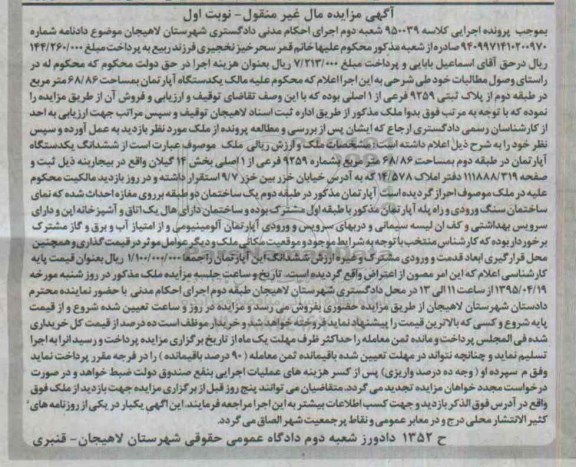 آگهی مزایده مال غیر منقول- نوبت اول
بموجب پرونده اجرایی کلاسه ۹۵۰۰۳۹ شعبه دوم اجرای احکام مدنی دادگستری شهرستان لاهیجان موضوع دادنامه شماره
۹۴۰۹۹۷۱۴۱۰۲۰۰۹۷۰ صادره از شعبه مذکور محکوم علیها خانم قمر سحرخیز نخجیری فرزند ربیع به پرداخت مبلغ ۱۴۴/۲۶۰/۰۰۰
ریال درحق آقای اسماعیل بابایی و پرداخت مبلغ ۷/۲۱۳/۰۰۰ ریال بعنوان هزینه اجرا در حق دولت محکوم که محکوم له در
راستای وصول مطالبات خود طی شرحی به این اجرا اعلام که محکوم علیه مالک یکدستگاه آپارتمان بمساحت ۶۸/۸۶ متر مربع
در طبقه دوم از پلاک ثبتی ۹۲۵۹ فرعی از ۱ اصلی بوده که با این وصف تقاضای توقیف و ارزیابی و فروش آن از طریق مزایده را
نموده که با توجه به مرتب فوق بدوا ملک مذکور از طریق اداره ثبت اسناد لاهیجان توقیف و سپس مراتب جهت ارزیابی به احد
از کارشناسان رسمی دادگستری ارجاع که ایشان پس از بررسی و مطالعه پرونده از ملک مورد نظر بازدید به عمل آورده و سپس
نظر خود را به شرح ذیل اعلام داشته است: مشخصات ملک و ارزش ریالی ملک موصوف عبارت است از ششدانگ یکدستگاه
آپارتمان در طبقه دوم بمساحت ۶۸/۸۶ متر مربع بشماره ۹۲۵۹ فرعی از ۱ اصلی بخش ۱۴ گیلان واقع در بیجاربنه ذیل ثبت و
صفحه ۱۱۱۸۸۸/۳۱۹ دفتر املاک ۱۴/۵۷۸ که به آدرس خیابان خزر بین خزر ۹/۷ استقرار داشته و در روز بازدید مالکیت محکوم
علیه در ملک موصوف احراز گردیده است. آپارتمان مذکور در طبقه دوم یک ساختمان دو طبقه برروی مغازه احداث شده که نمای
ساختمان سنگ ورودی و راه پله آپارتمان مذکور با طبقه اول مشترک بوده و ساختمان دارای هال یک اتاق و آشپزخانه این و دارای
سرویس بهداشتی و کف ان لیسه سیمانی و دربهای سرویس و ورودی آپارتمان آلومینیومی و از امتیاز آب و برق و گاز مشترک
برخوردار بوده که کارشناس منتخب با توجه به شرایط موجود و موقعیت مکانی ملک و دیگر عوامل موثر در قیمت گذاری و همچنین
محل قرارگیری ابعاد قدمت و ورودی مشترک و غیره ارزش ششدانگ این آپارتمان را جمعا ۱/۱۰۰/۰۰۰/۰۰۰ ریال بعنوان قیمت پایه
کارشناسی اعلام که این امر مصون از اعتراض واقع گردیده است. تاریخ و ساعت جلسه مزایده ملک مذکور در روز شنبه مورخه
۱۳۹۵/۰۴/۱۹ از ساعت ۱۱ الی ۱۳ در محل دادگستری شهرستان لاهیجان طبقه دوم اجرای احکام مدنی با حضور نماینده محترم
دادستان شهرستان لاهیجان از طریق مزایده حضوری بفروش می رسد و مزایده در روز و ساعت تعیین شده شروع و از قیمت
پایه شروع و کسی که بالاترین قیمت را پیشنهاد نماید فروخته خواهد شد و خریدار موظف است ده درصد از قیمت کل خریداری
شده فی المجلس پرداخت و مانده ثمن معامله را حداکثر ظرف مهلت یک ماه از تاریخ برگزاری مزایده پرداخت و رسید انرا به اجرا
تسلیم نماید و چنانچه نتواند در مهلت تعیین شده باقیمانده ثمن معامله (۹۰ درصد باقیمانده) را در فرجه مقرر پرداخت نماید
وفق م سپرده او (وجه ده درصد واریزی) پس از کسر هزینه های عملیات اجرایی بنفع صندوق دولت ضبط خواهد و در صورت
درخواست مجدد خواهان مزایده تجدید می گردد. متقاضیان می توانند پنج روز قبل از برگزاری مزایده جهت بازدید از ملک فوق
واقع در آدرس فوق الذکر بازدید و جهت کسب اطلاعات بیشتر به این اجرا مراجعه فرمایند. این اگهی یکبار در یکی از روزنامه های
کثیر الانتشار محلی درج و در معابر عمومی و نقاط پرجمعیت شهر الصاق می گردد.
ح ۱۳۵۲ دادورز شعبه دوم دادگاه عمومی حقوقی شهرستان لاهیجان- قنبری